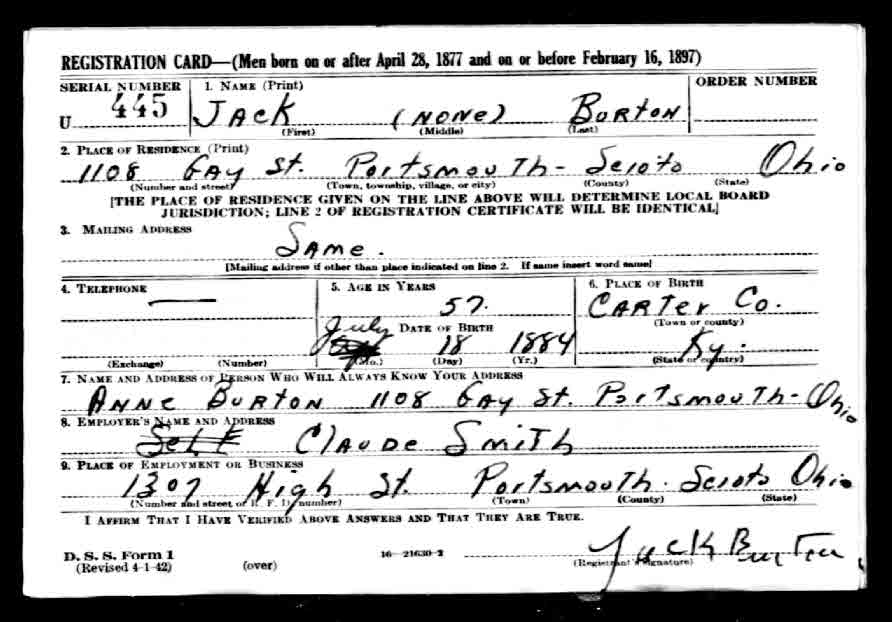 REGISTRATION CARD—(Men born on or after April 28, 1877 and on or before February 16, 1897)
SERIAL NUMBER 1. NAME (Print) ORDER NUMBER
U 445 JACK (NONE) BURTON
(First) (Middle) (Last)
2. PLACE OF RESIDENCE (Print)
1108 GAY St. Portsmouth - Scioto Ohio
(Number and street) (Town, township, village, or city) (County) (State)
[THE PLACE OF RESIDENCE GIVEN ON THE LINE ABOVE WILL DETERMINE LOCAL BOARD
JURISDICTION; LINE 2 OF REGISTRATION CERTIFICATE WILL BE IDENTICAL]
3. MAILING ADDRESS
SAME.
[Mailing address if other than place indicated on line 2. If same insert word same]
4. TELEPHONE 5. AGE IN YEARS 6. PLACE OF BIRTH
— 57. CARTER Co.
(Town or county)
July DATE OF BIRTH
18 1884 Ky.
(Exchange) (Number) (Mo.) (Day) (Yr.) (State or country)
7. NAME AND ADDRESS OF PERSON WHO WILL ALWAYS KNOW YOUR ADDRESS
ANNE BURTON 1108 GAY St. Portsmouth - Ohio
8. EMPLOYER'S NAME AND ADDRESS
Self Claude Smith
9. PLACE OF EMPLOYMENT OR BUSINESS
1307 High St. Portsmouth. Scioto Ohio
(Number and street or R. F. D. number) (Town) (County) (State)
I AFFIRM THAT I HAVE VERIFIED ABOVE ANSWERS AND THAT THEY ARE TRUE.
Jack Burton
D. S. S. Form 1 16—21630-2 (Registrant's signature)
(Revised 4-1-42) (over)